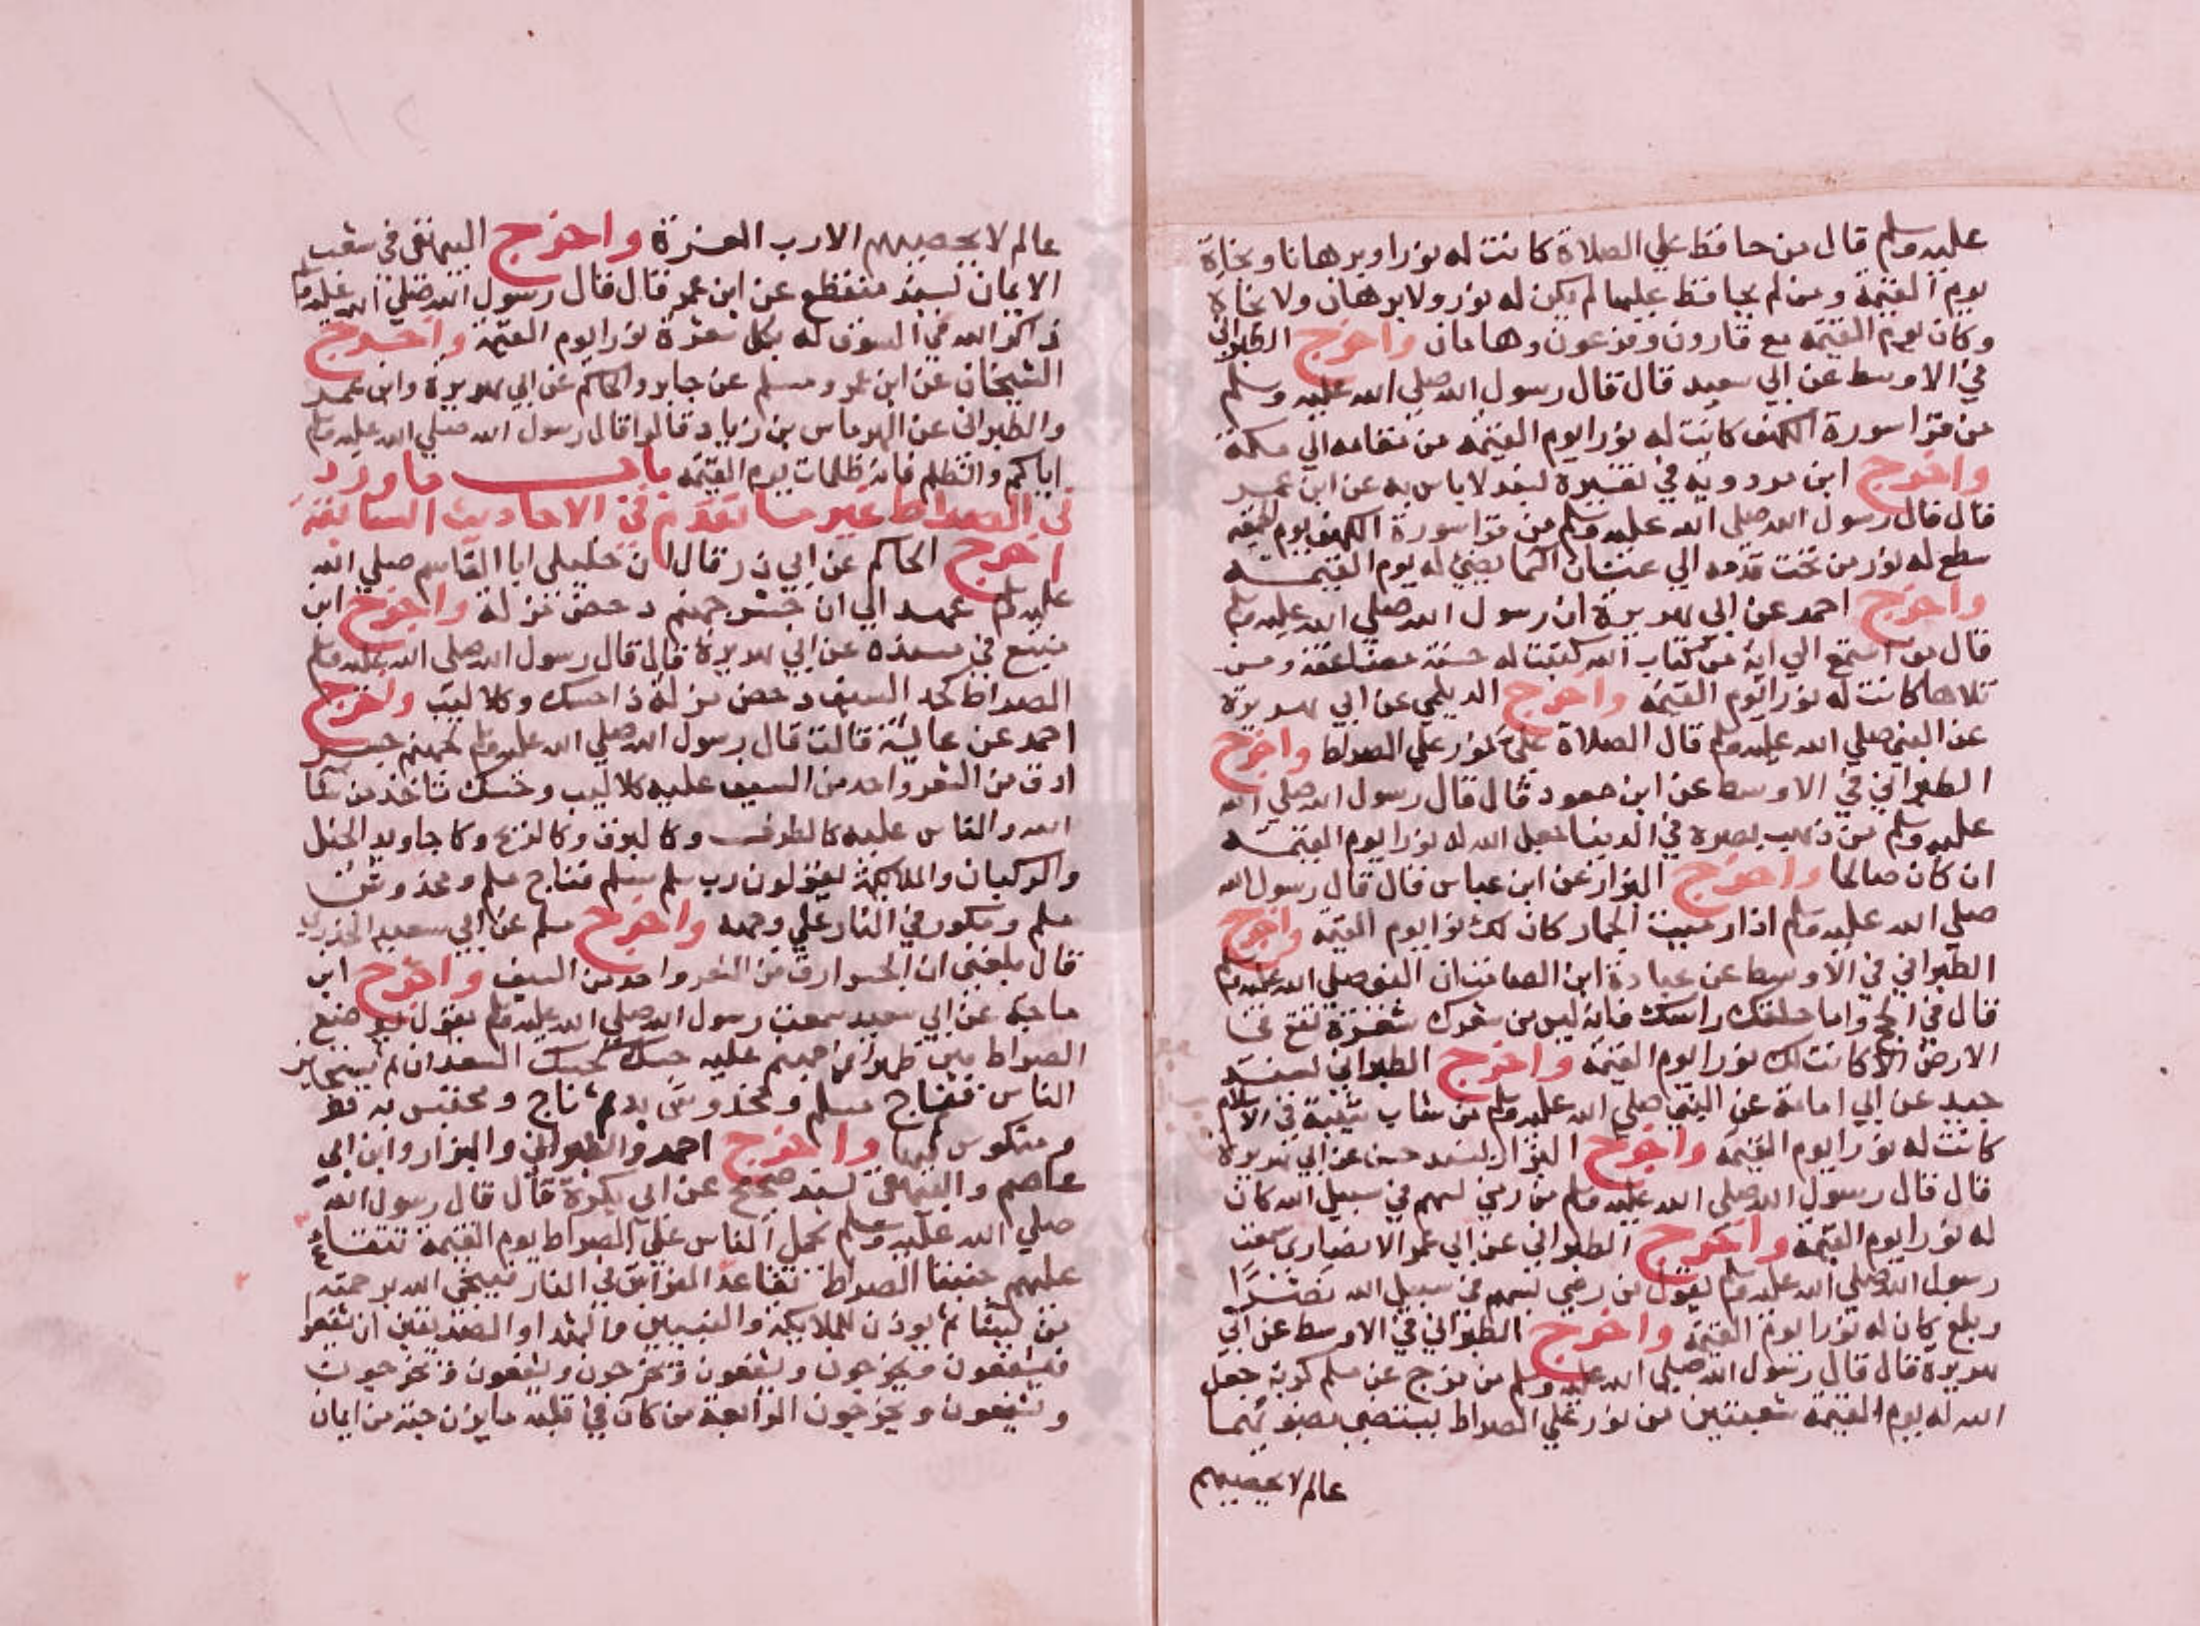 عليه وسلم قال من حافظ علي الصلاة كانت له نورا وبرهانا ونجاة
يوم القيمة ومن لم يحافظ عليها لم يكن له نور ولا برهان ولا نجاة
وكان يوم القيمة مع قارون وفرعون وهامان واخرج الطبراني
في الاوسط عن ابي سعيد قال قال رسول الله صلي الله عليه وسلم
من قرا سورة الكهف كانت له نورا يوم القيمة من مقامه الي مكة
واخرج ابن مردويه في تفسيره بسند لا باس به عن ابن عمر
قال قال رسول الله صلي الله عليه وسلم من قرا سورة الكهف يوم الجمعة
سطع له نور من تحت قدمه الي عنان السما يضئ له يوم القيمة
واخرج احمد عن ابي هريرة ان رسول الله صلي الله عليه وسلم
قال من استمع الي اية من كتاب الله كتبت له حسنة مضاعفة ومن
تلاها كانت له نورا يوم القيمة واخرج الديلمي عن ابي هريرة
عن النبي صلي الله عليه وسلم قال الصلاة علي نور علي الصراط واخرج
الطبراني في الاوسط عن ابن مسعود قال قال رسول الله صلي الله
عليه وسلم من ذهب بصره في الدنيا جعل الله له نورا يوم القيمة
ان كان صالحا واخرج البزار عن ابن عباس قال قال رسول الله
صلي الله عليه وسلم اذا رميت الجمار كان لك نورا يوم القيمة واخرج
الطبراني في الاوسط عن عبادة ابن الصامت ان النبي صلي الله عليه وسلم
قال في الحج واما حلقك راسك فانه ليس من شعرك شعرة تقع علي
الارض الا كانت لك نورا يوم القيمة واخرج الطبراني بسند
جيد عن ابي امامة عن النبي صلي الله عليه وسلم من شاب شيبة في الاسلام
كانت له نورا يوم القيمة واخرج البزار بسند حسن عن ابي هريرة
قال قال رسول الله صلي الله عليه وسلم من رمي بسهم في سبيل الله كان
له نورا يوم القيمة واخرج الطبراني عن ابي عمرو الانصاري سمعت
رسول الله صلي الله عليه وسلم يقول من رمي بسهم في سبيل الله
وبلغ كان له نورا يوم القيمة واخرج الطبراني في الاوسط عن ابي
هريرة قال قال رسول الله صلي الله عليه وسلم من فرج عن مسلم كربة جعل
الله له يوم القيمة شعبتين من نور علي الصراط يستضي بضوئهما
عالم لا يحصيهم
عالم لا يحصيهم الا رب العزة واخرج البيهقي في شعب
الايمان بسند منقطع عن ابن عمر قال قال رسول الله صلي الله عليه وسلم
ذاكر الله في السوق له بكل شعرة نور يوم القيمة واخرج
الشيخان عن ابن عمر ومسلم عن جابر والحاكم عن ابي هريرة وابن عمر
والطبراني عن الهرماس بن زياد قالوا قال رسول الله صلي الله عليه وسلم
اياكم والظلم فانه ظلمات يوم القيمة باب ما ورد
في الصراط غير ما تقدم في الاحاديث السابقة
اخرج الحاكم عن ابي ذر قال ان خليلي ابا القاسم صلي الله
عليه وسلم عهد الي ان جسر جهنم دحض مزلة واخرج ابن
منيع في مسنده عن ابي هريرة قال قال رسول الله صلي الله عليه وسلم
الصراط كحد السيف دحض مزلة ذا حسك وكلاليب واخرج
احمد عن عائشة قالت قال رسول الله صلي الله عليه وسلم لجهنم جسر
ادق من الشعر واحد من السيف عليه كلاليب وحسك تاخذ من شا
الله والناس عليه كالطرف وكالبرق وكالريح وكاجاويد الخيل
والركبان والملائكة يقولون رب سلم سلم فناج مسلم ومخدوش
مسلم ومكور في النار علي وجهه واخرج مسلم عن ابي سعيد الخدري
قال بلغني ان الجسر ارق من الشعر واحد من السيف واخرج ابن
ماجه عن ابي سعيد سمعت رسول الله صلي الله عليه وسلم يقول يوضع
الصراط بين ظهراني جهنم عليه حسك كحسك السعدان ثم يستجيز
الناس فناج مسلم ومخدوش به ثم ناج ومحتبس به
ومنكوس فيها واخرج احمد والطبراني والبزار وابن ابي
عاصم والبيهقي بسند صحيح عن ابي بكرة قال قال رسول الله
صلي الله عليه وسلم يحمل الناس علي الصراط يوم القيمة تتقادع
عليهم جنبتا الصراط تقادع الفراش في النار فينجي الله برحمته
من يشا ثم يوذن للملايكة والنبيين والشهدا والصديقين ان يشفعوا
فيشفعون ويخرجون ويشفعون ويخرجون ويشفعون ويخرجون
ويشفعون ويخرجون الرابعة من كان في قلبه ما يزن حبة من ايمان